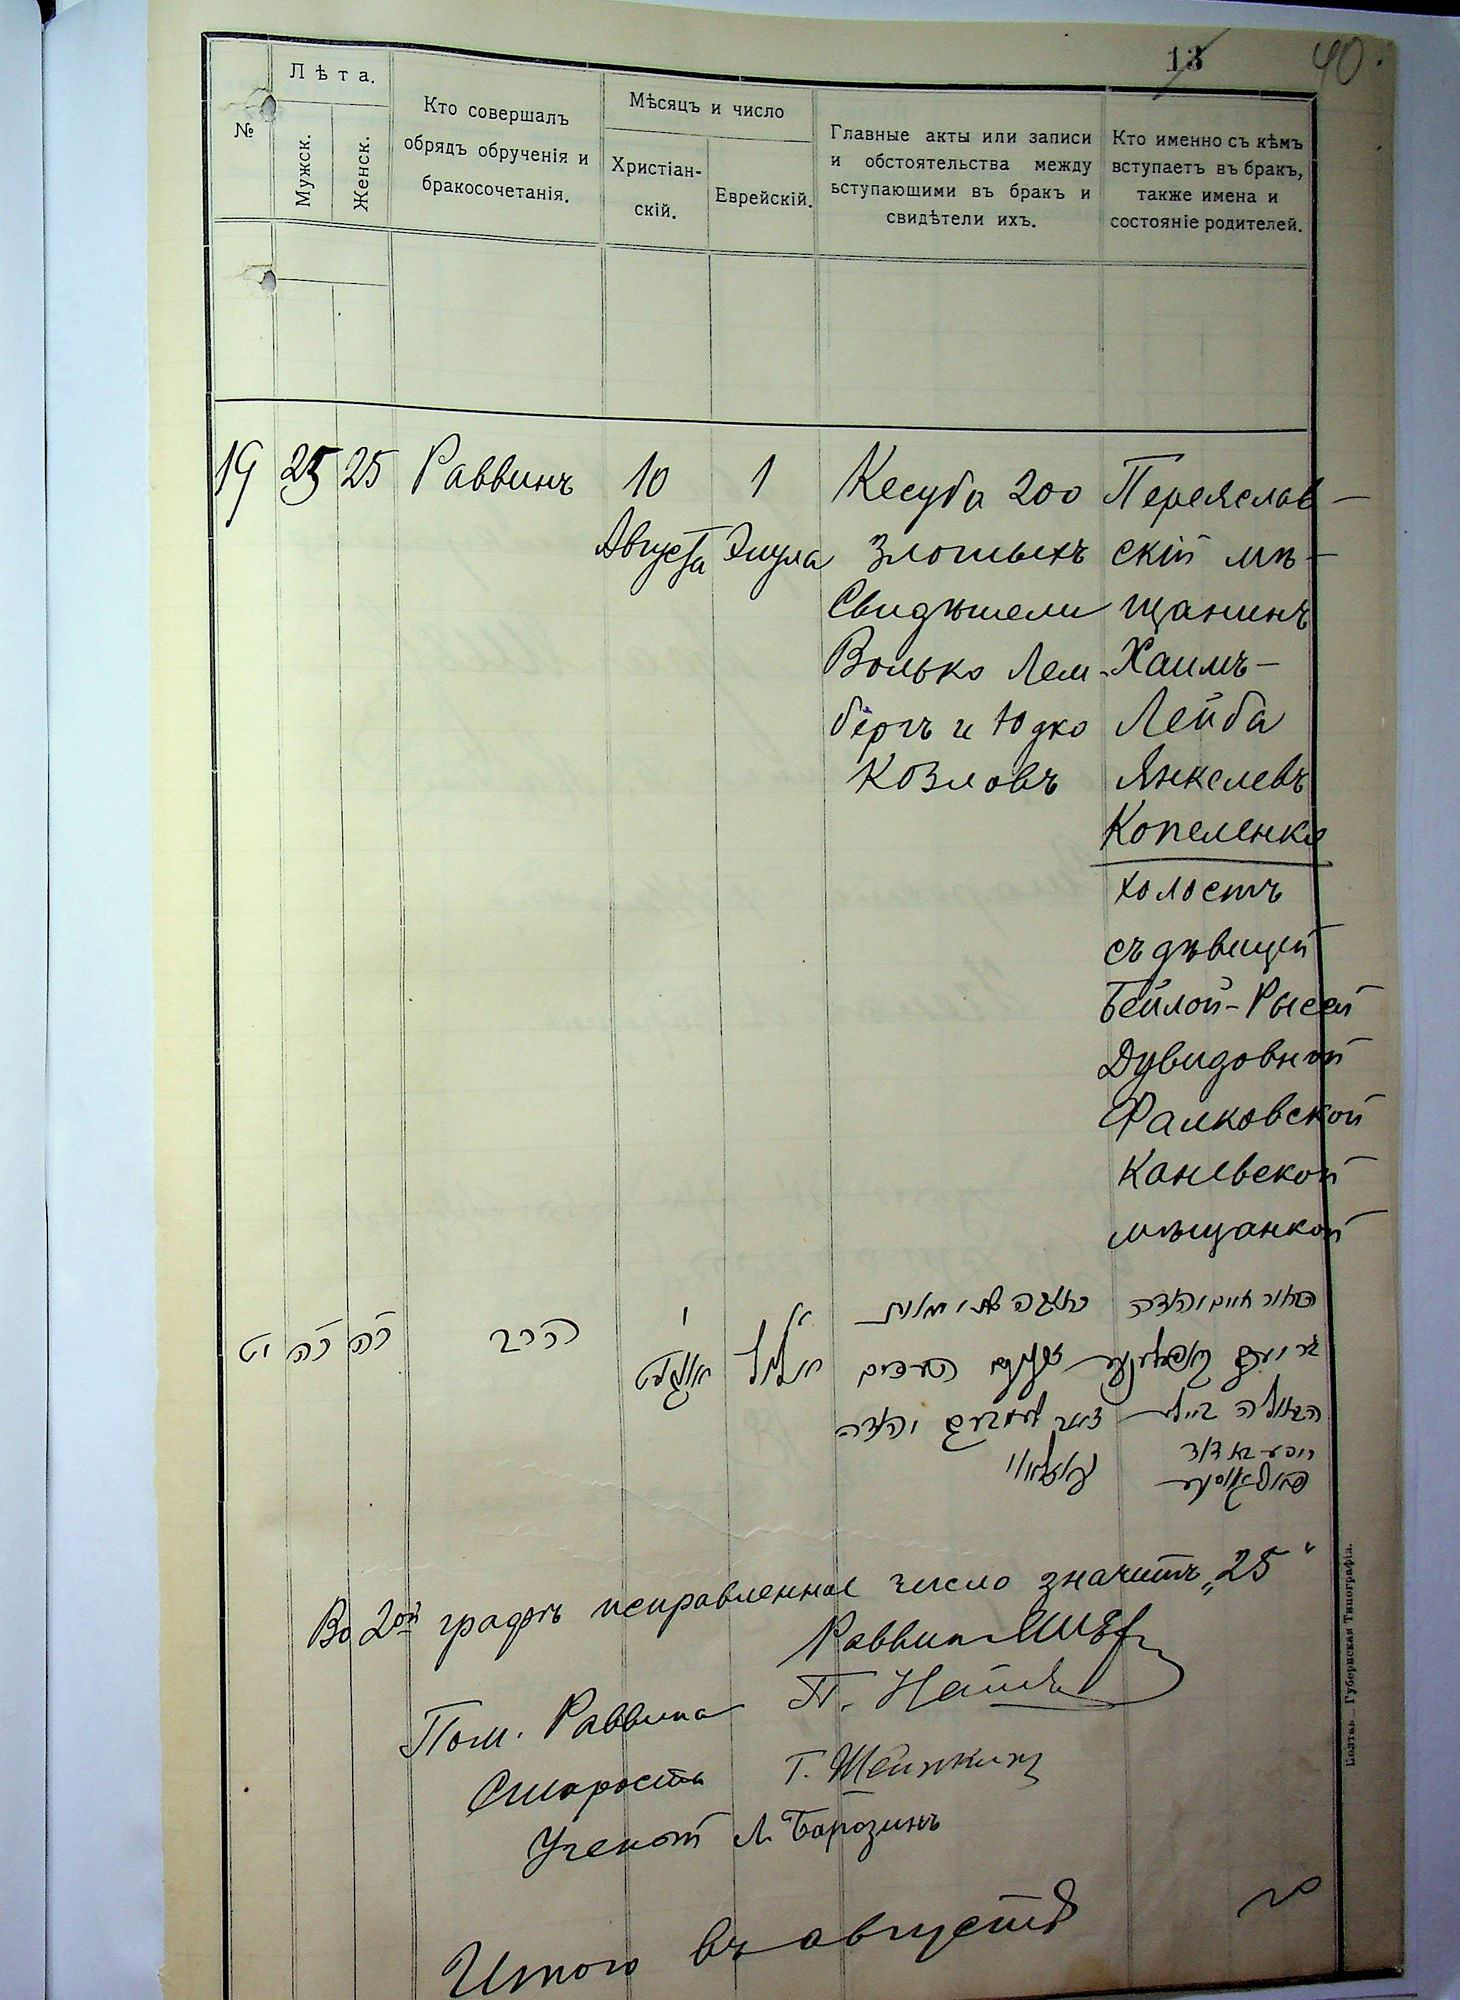 13
40.
№
Лѣта.
Мужск.
Женск.
Кто совершалъ
обрядъ обрученія и
бракосочетанія.
Мѣсяцъ и число
Христіан-
скій.
Еврейскій.
Главные акты или записи
и обстоятельства между
вступающими въ бракъ и
свидѣтели ихъ.
Кто именно съ кѣмъ
вступаетъ въ бракъ,
также имена и
состояніе родителей.
19
25
25
Раввинъ
10
Августа
1
Элула
Кесуба 200
злотыхъ
Свидѣтели
Волько Лем-
бергъ и Юдко
Козловъ
Переяслав-
скій мѣ-
щанинъ
Хаимъ-
Лейба
Янкелевъ
Копеленко
холостъ
съ дѣвицей
Бейлой-Рысей
Дувидовной
Фалковской
Каневской
мѣщанкой
יט
כה
כה
הרב
י
אווגוסט
א
אלול
כתובה מאות
העדים
צבי ויהודה
קאזלאוו
הבחור חיים יהודה
הבתולה ביילע
דוד
Во 2ой графѣ исправленное число значитъ „25“
Раввинъ
Пом. Раввина П.
Староста Г. Шейнкинъ
Ученый Л. Барозинъ
Итого въ августѣ
Полтава. Губернская Типографія.